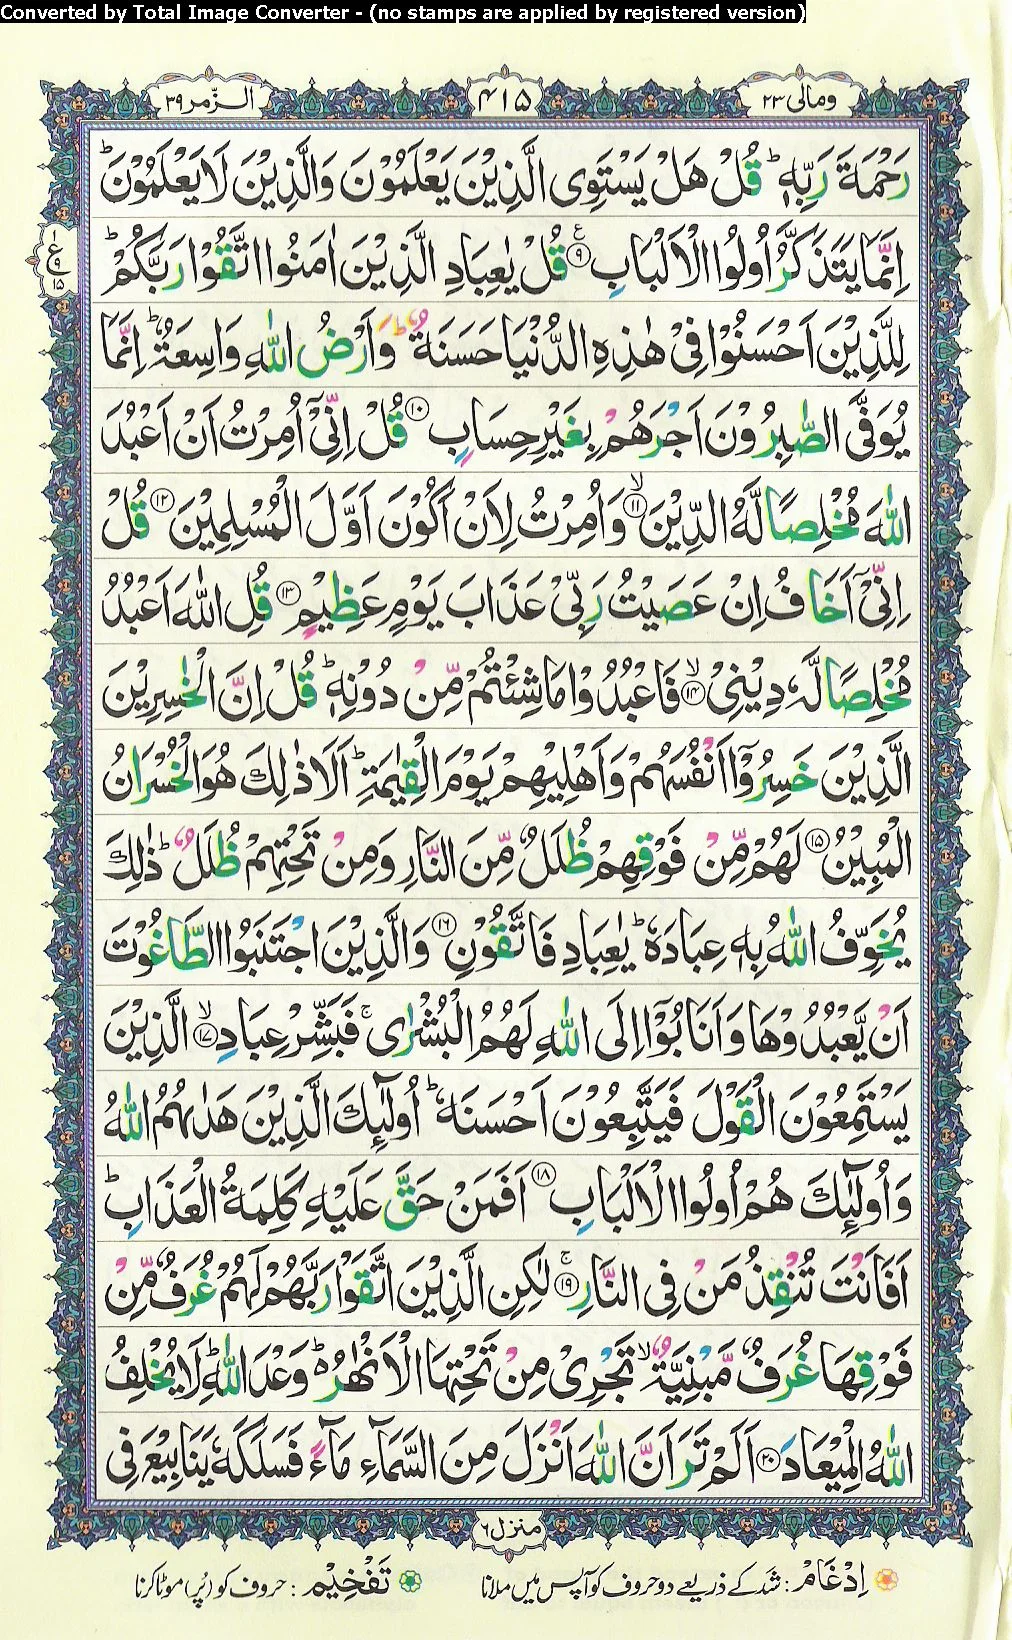 Converted by Total Image Converter - (no stamps are applied by registered version)
ومالی ۲۳
۴۱۵
الزّمر ۳۹
رَحْمَةَ رَبِّهٖ ؕ قُلْ هَلْ يَسْتَوِى الَّذِيْنَ يَعْلَمُوْنَ وَالَّذِيْنَ لَا يَعْلَمُوْنَ ؕ
اِنَّمَا يَتَذَكَّرُ اُولُوا الْاَلْبَابِ ۹ ع قُلْ يٰعِبَادِ الَّذِيْنَ اٰمَنُوا اتَّقُوْا رَبَّكُمْ ؕ
ع ۹ ۱۵
لِلَّذِيْنَ اَحْسَنُوْا فِىْ هٰذِهِ الدُّنْيَا حَسَنَةٌ ؕ وَاَرْضُ اللّٰهِ وَاسِعَةٌ ؕ اِنَّمَا
يُوَفَّى الصّٰبِرُوْنَ اَجْرَهُمْ بِغَيْرِ حِسَابٍ ۱۰ قُلْ اِنِّىْۤ اُمِرْتُ اَنْ اَعْبُدَ
اللّٰهَ مُخْلِصًا لَّهُ الدِّيْنَ ۱۱ ۙ وَاُمِرْتُ لِاَنْ اَكُوْنَ اَوَّلَ الْمُسْلِمِيْنَ ۱۲ قُلْ
اِنِّىْۤ اَخَافُ اِنْ عَصَيْتُ رَبِّىْ عَذَابَ يَوْمٍ عَظِيْمٍ ۱۳ قُلِ اللّٰهَ اَعْبُدُ
مُخْلِصًا لَّهٗ دِيْنِىْ ۱۴ ۙ فَاعْبُدُوْا مَا شِئْتُمْ مِّنْ دُوْنِهٖ ؕ قُلْ اِنَّ الْخٰسِرِيْنَ
الَّذِيْنَ خَسِرُوْۤا اَنْفُسَهُمْ وَاَهْلِيْهِمْ يَوْمَ الْقِيٰمَةِ ؕ اَلَا ذٰلِكَ هُوَ الْخُسْرَانُ
الْمُبِيْنُ ۱۵ لَهُمْ مِّنْ فَوْقِهِمْ ظُلَلٌ مِّنَ النَّارِ وَمِنْ تَحْتِهِمْ ظُلَلٌ ؕ ذٰلِكَ
يُخَوِّفُ اللّٰهُ بِهٖ عِبَادَهٗ ؕ يٰعِبَادِ فَاتَّقُوْنِ ۱۶ وَالَّذِيْنَ اجْتَنَبُوا الطَّاغُوْتَ
اَنْ يَّعْبُدُوْهَا وَاَنَابُوْۤا اِلَى اللّٰهِ لَهُمُ الْبُشْرٰى ۚ فَبَشِّرْ عِبَادِ ۱۷ ۙ الَّذِيْنَ
يَسْتَمِعُوْنَ الْقَوْلَ فَيَتَّبِعُوْنَ اَحْسَنَهٗ ؕ اُولٰٓئِكَ الَّذِيْنَ هَدٰىهُمُ اللّٰهُ
وَاُولٰٓئِكَ هُمْ اُولُوا الْاَلْبَابِ ۱۸ اَفَمَنْ حَقَّ عَلَيْهِ كَلِمَةُ الْعَذَابِ ؕ
اَفَاَنْتَ تُنْقِذُ مَنْ فِى النَّارِ ۱۹ ۚ لٰكِنِ الَّذِيْنَ اتَّقَوْا رَبَّهُمْ لَهُمْ غُرَفٌ مِّنْ
فَوْقِهَا غُرَفٌ مَّبْنِيَّةٌ ۙ تَجْرِىْ مِنْ تَحْتِهَا الْاَنْهٰرُ ؕ وَعْدَ اللّٰهِ ؕ لَا يُخْلِفُ
اللّٰهُ الْمِيْعَادَ ۲۰ اَلَمْ تَرَ اَنَّ اللّٰهَ اَنْزَلَ مِنَ السَّمَآءِ مَآءً فَسَلَكَهٗ يَنَابِيْعَ فِى
منزل ۶
اِدْغَام : شد کے ذریعے دو حروف کو آپس میں ملانا
تَفْخِيْم : حروف کو (پُر) موٹا کرنا